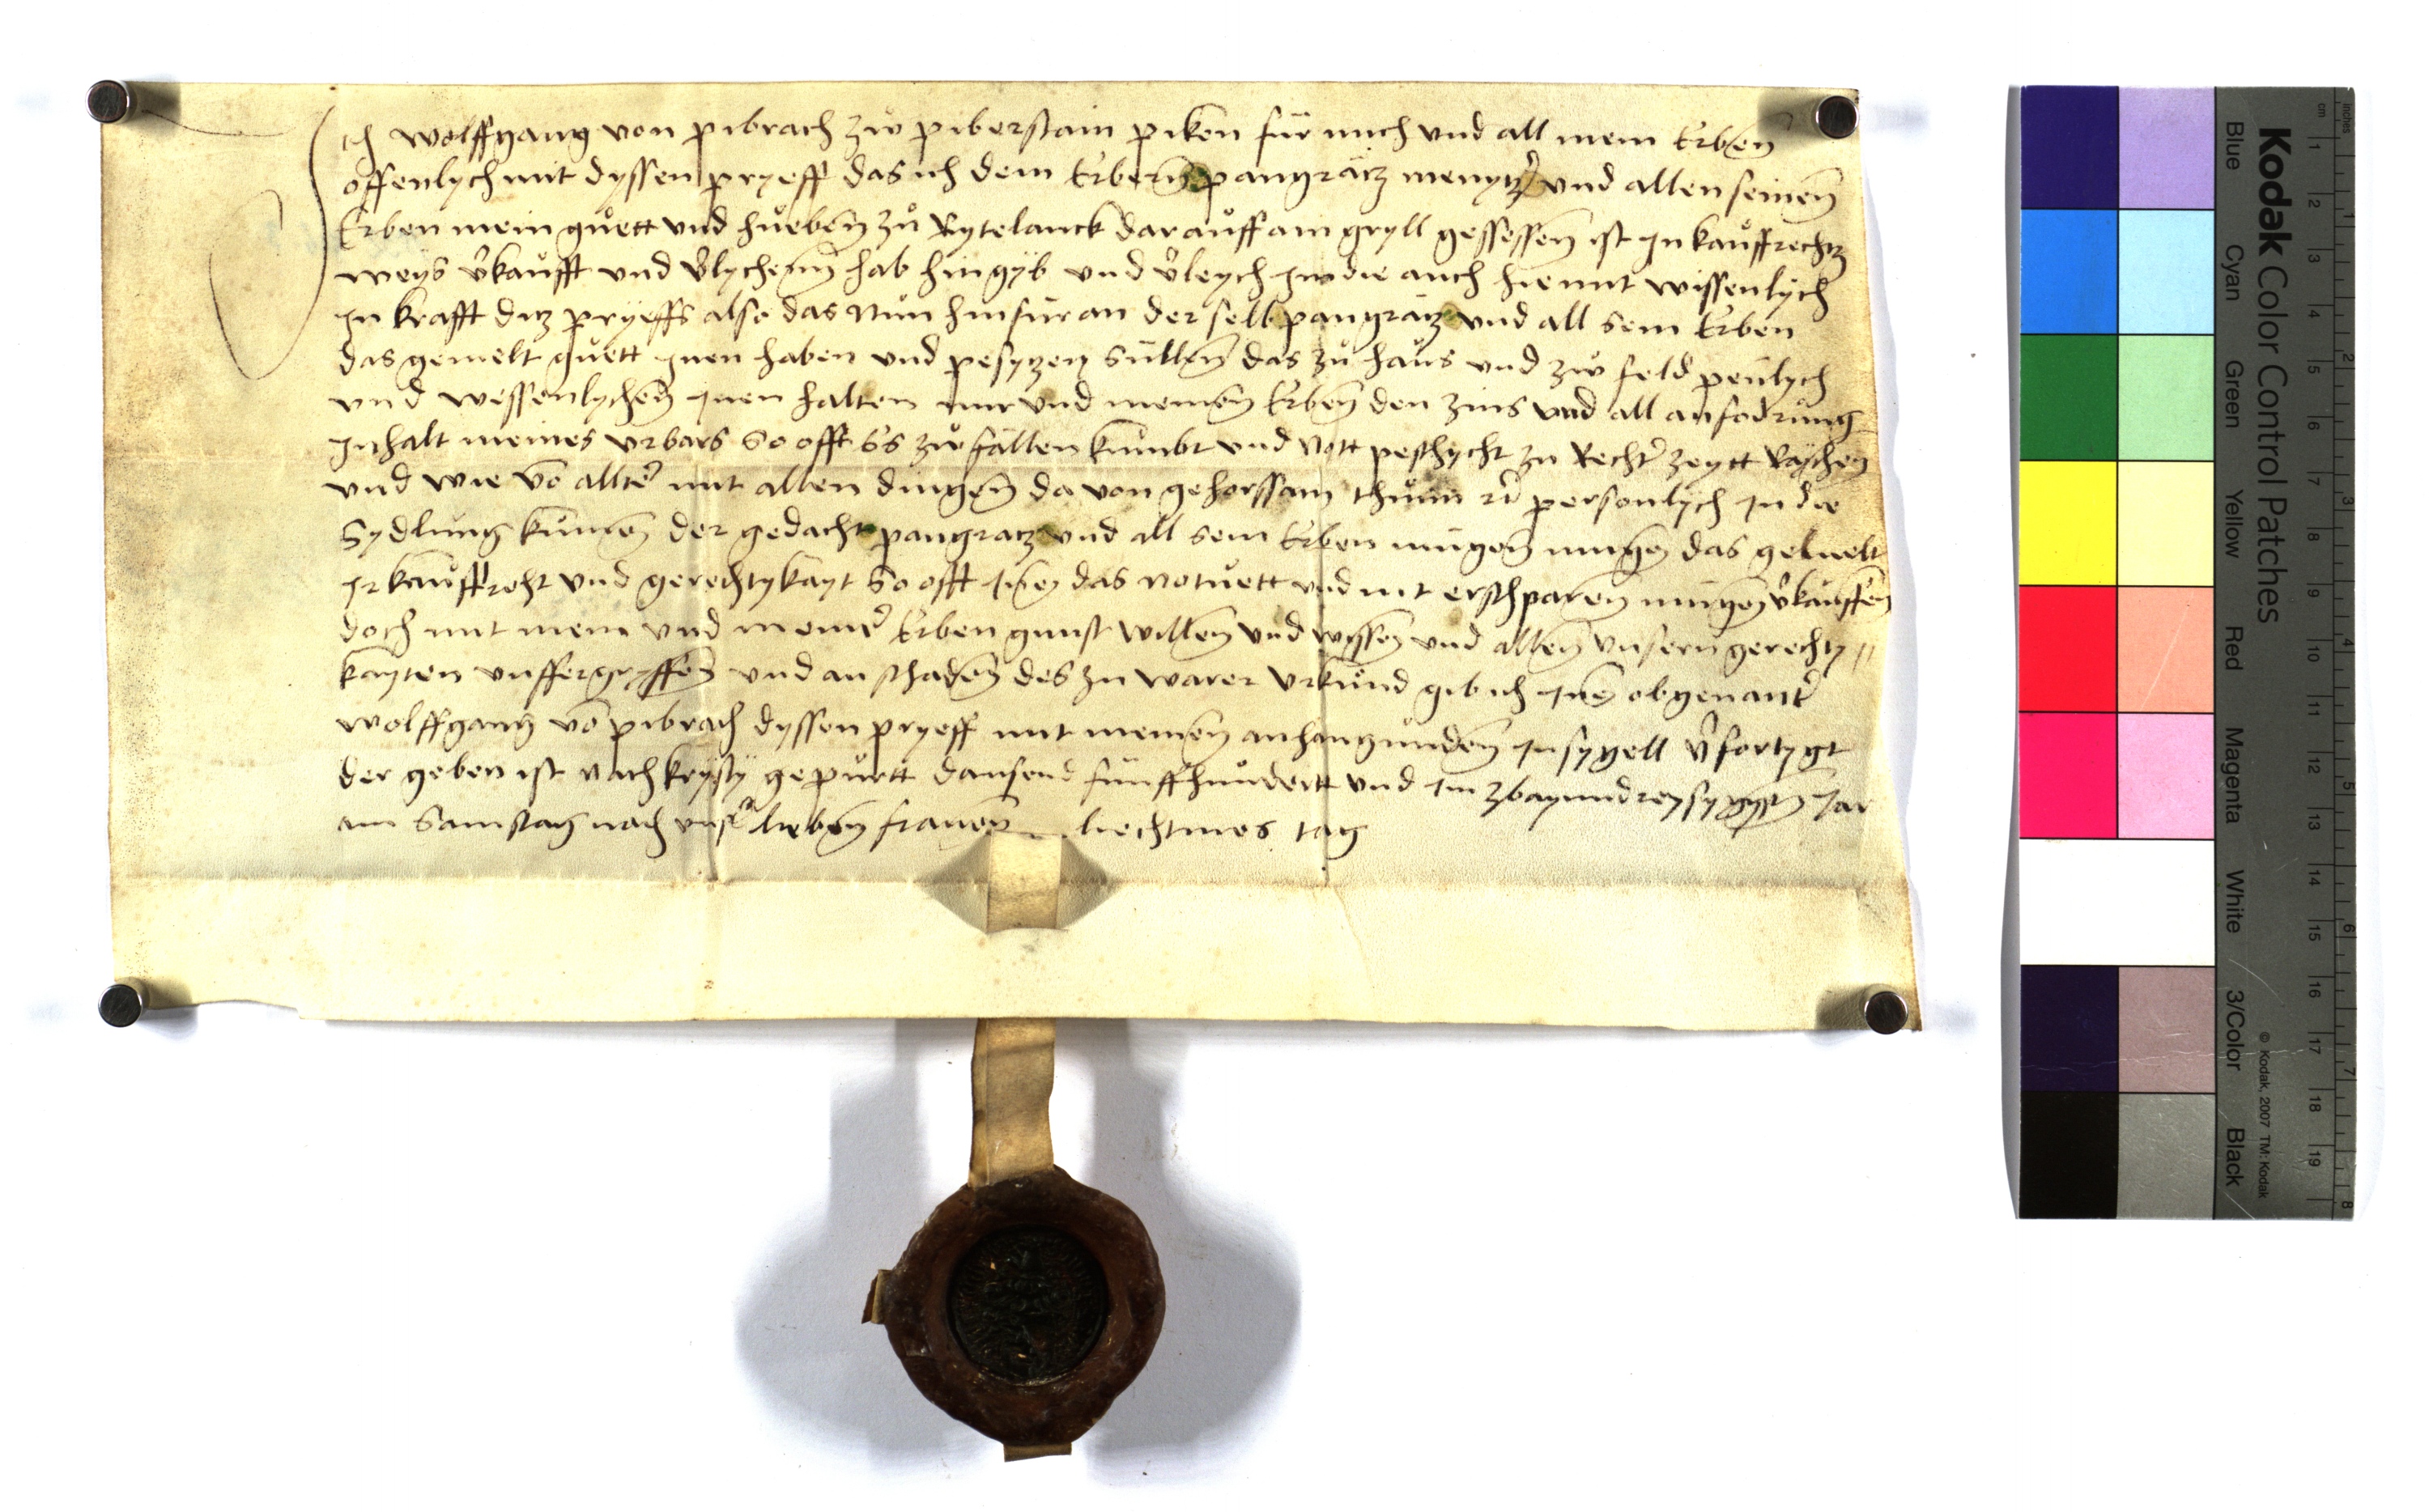 Ich wolffgang von pibrach zw piberstain piken für mich vnd all mein Erben
offenlych mit dyssen pryeff das ich dem Erbern pangrätz vnd allen seinen
Erben mein guett vnd hueben zu Rytelanck darauff ain gryll gessessen ist In kauffrechtz
weys vkaufft vnd vlychenn hab hin gyb vnd vleych Im die auch hiemit wissenlych
In krafft ditz pryeffs also das Nun hinfür an der selb pangrätz vnd all sein Erben
das gemelt guett Inen haben vnd pesytzen süllen das zu haus vnd zw feld peulych
vnd wessenlychen Inen halten mir vnd meinen Erben den zins vnd all anfodrung
Inhalt meines vrbars So offt Es zw fallen kumbt vnd Nott peschycht zu Rechter zeytt Raychen
vnd wie vo allter mit allen dingen da von gehorssam thuin personlych In die
Sydlung kumen der gedacht pangratz vnd all sein Erben mügen das gemelt
Ir kauffrecht vnd gerechtykayt So offt Inen das Notuett vnd nit erschparen mügen vkauffen
doch mit mein vnd meiner Erben gunst willen vnd wyssen vnd allen vnsern gerechty
kayten vnffergryffen vnd an schaden des zu warer vrkund gib ich Inen obgenanter
wolffgang vo pibrach dyssen pryeff mit meinen anhangunden Insygell vfertygt
der geben ist Nach krysty gepurtt dausend fünffhundertt vnd Im zbayundreysygysten Jar
am Samstag nach vnser lieben frauen liechtmes tag
Kodak Color Control Patches
Blue Cyan Green Yellow Red Magenta White 3/Color Black
© Kodak, 2007 TM: Kodak
inches 1 2 3 4 5 6 7 8
cm 1 2 3 4 5 6 7 8 9 10 11 12 13 14 15 16 17 18 19